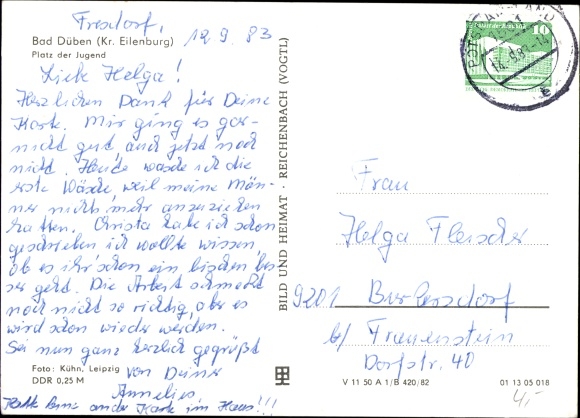 Fresdorf, 12.9.83
Bad Düben (Kr. Eilenburg)
Platz der Jugend
Liebe Helga!
Herzlichen Dank für Deine
Karte. Mir ging es gar-
nicht gut auch jetzt noch
nicht. Heute wasche ich die
erste Wäsche weil meine Män-
ner nichts mehr anzuziehen
hatten. Christa habe ich schon
geschrieben ich wollte wissen
ob es ihr schon ein bischen bes-
ser geht. Die Arbeit schmeckt
noch nicht so richtig, aber es
wird schon wieder werden.
Sei nun ganz herzlich gegrüßt
von Deiner
Annelies
Hatte keine andere Karte im Haus!!!
Foto: Kühn, Leipzig
DDR 0,25 M
BILD UND HEIMAT · REICHENBACH (VOGTL)
10
POTSDAM
14.9.83
Frau
Helga Fleischer
9201 Burkersdorf
b/ Frauenstein
Dorfstr. 40
V 11 50 A 1/B 420/82
01 13 05 018
4,-